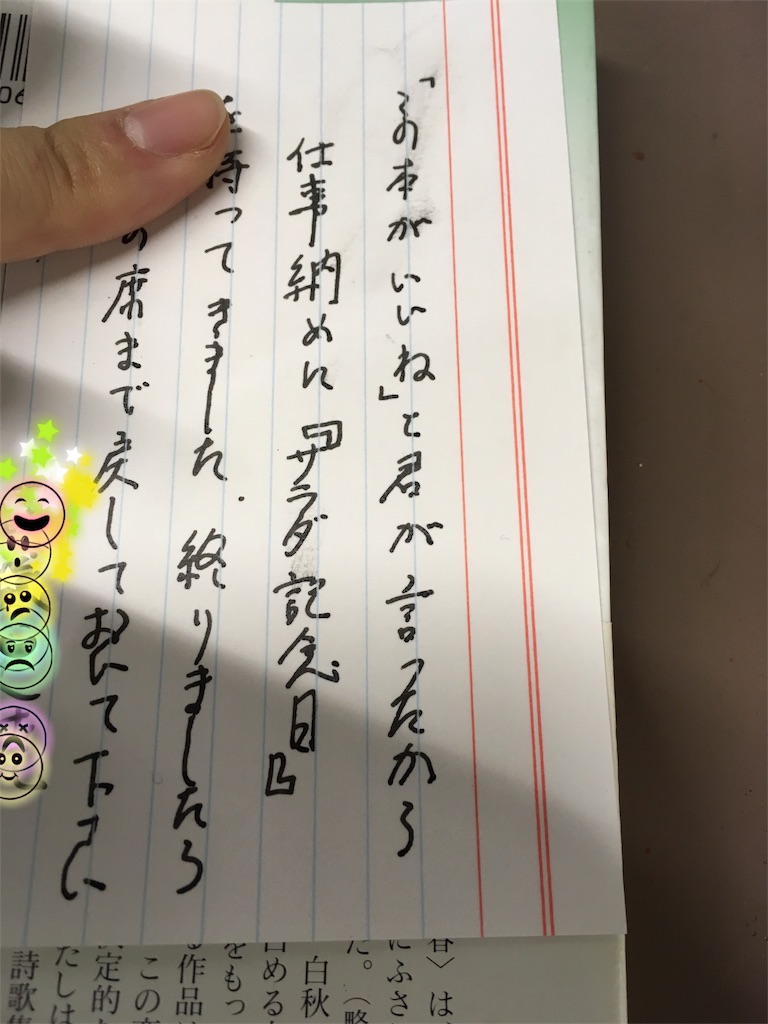 「この本がいいね」と君が言ったから
仕事納めに『サラダ記念日』
を持ってきました。終りましたら
の席まで戻しておいて下さい
春〉は
にふさ
た。（略
白秋
占めるか
をもっ
る作品は
この
決定的な
たしは
詩歌集
06